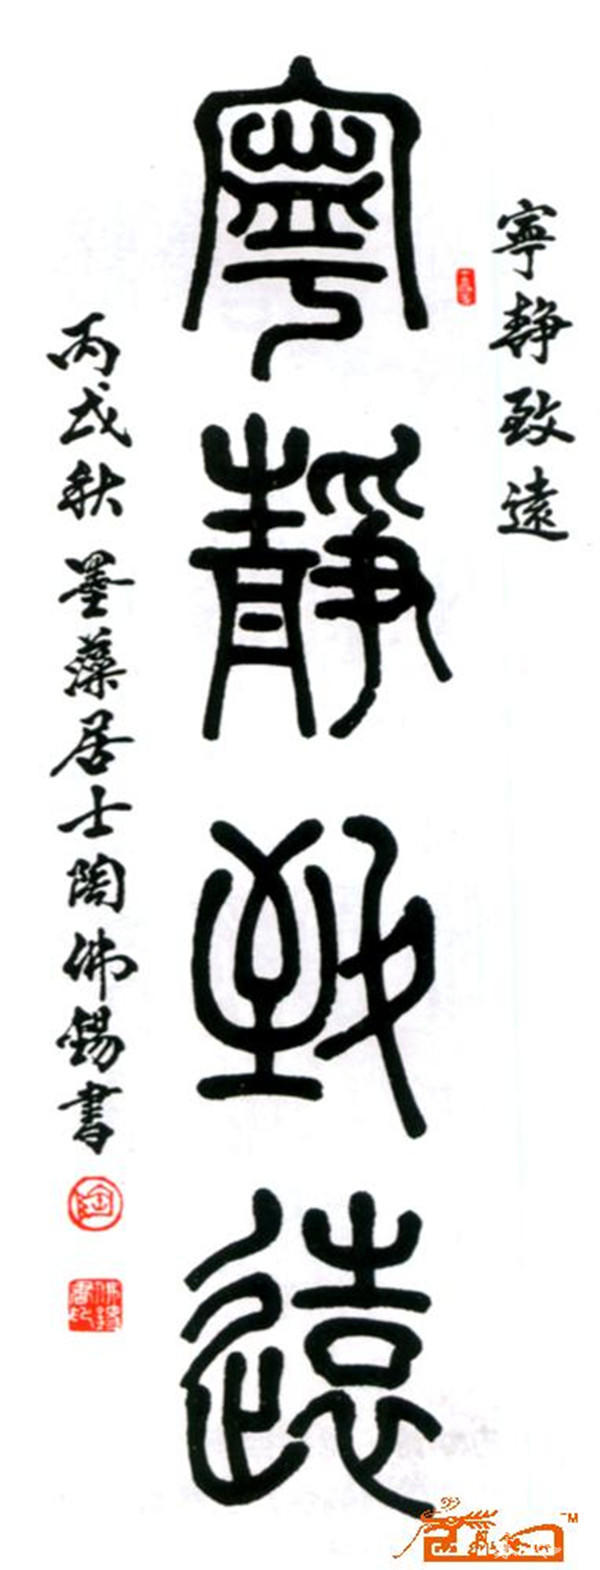 寧靜致遠
寧靜致遠
丙戌秋 墨藻居士陶佛錫書